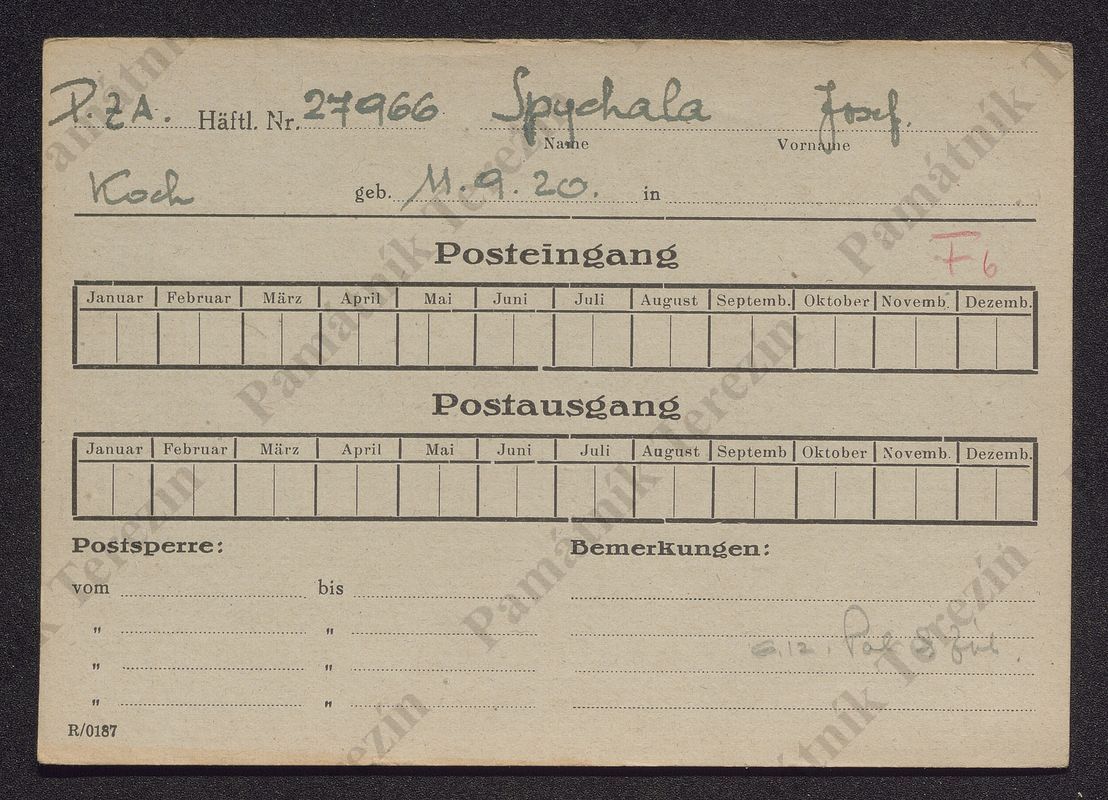 P.Z.A. Häftl. Nr. 27966 Spychala Josef.
Name Vorname
Koch geb. 11.9.20. in
Posteingang
F6
Januar Februar März April Mai Juni Juli August Septemb. Oktober Novemb. Dezemb.
Postausgang
Januar Februar März April Mai Juni Juli August Septemb Oktober Novemb. Dezemb.
Postsperre: Bemerkungen:
vom bis
" "
" "
" "
R/0187
Památník Terezín